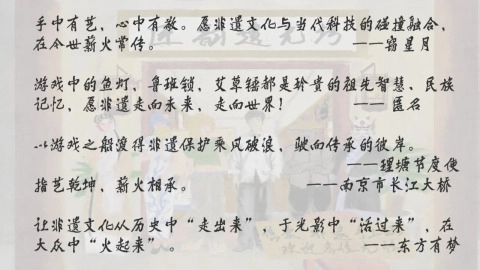 手中有艺，心中有敬。愿非遗文化与当代科技的碰撞融合，
在今世薪火常传。 ——窃星月
游戏中的鱼灯、鲁班锁，艾草糍都是珍贵的祖先智慧、民族
记忆，愿非遗走向未来，走向世界！ ——匿名
以游戏之船渡得非遗保护乘风破浪，驶向传承的彼岸。
——瞿塘节度使
指艺乾坤，薪火相承。 ——南京市长江大桥
让非遗文化从历史中“走出来”，于光影中“活过来”，在
大众中“火起来”。 ——东方有梦